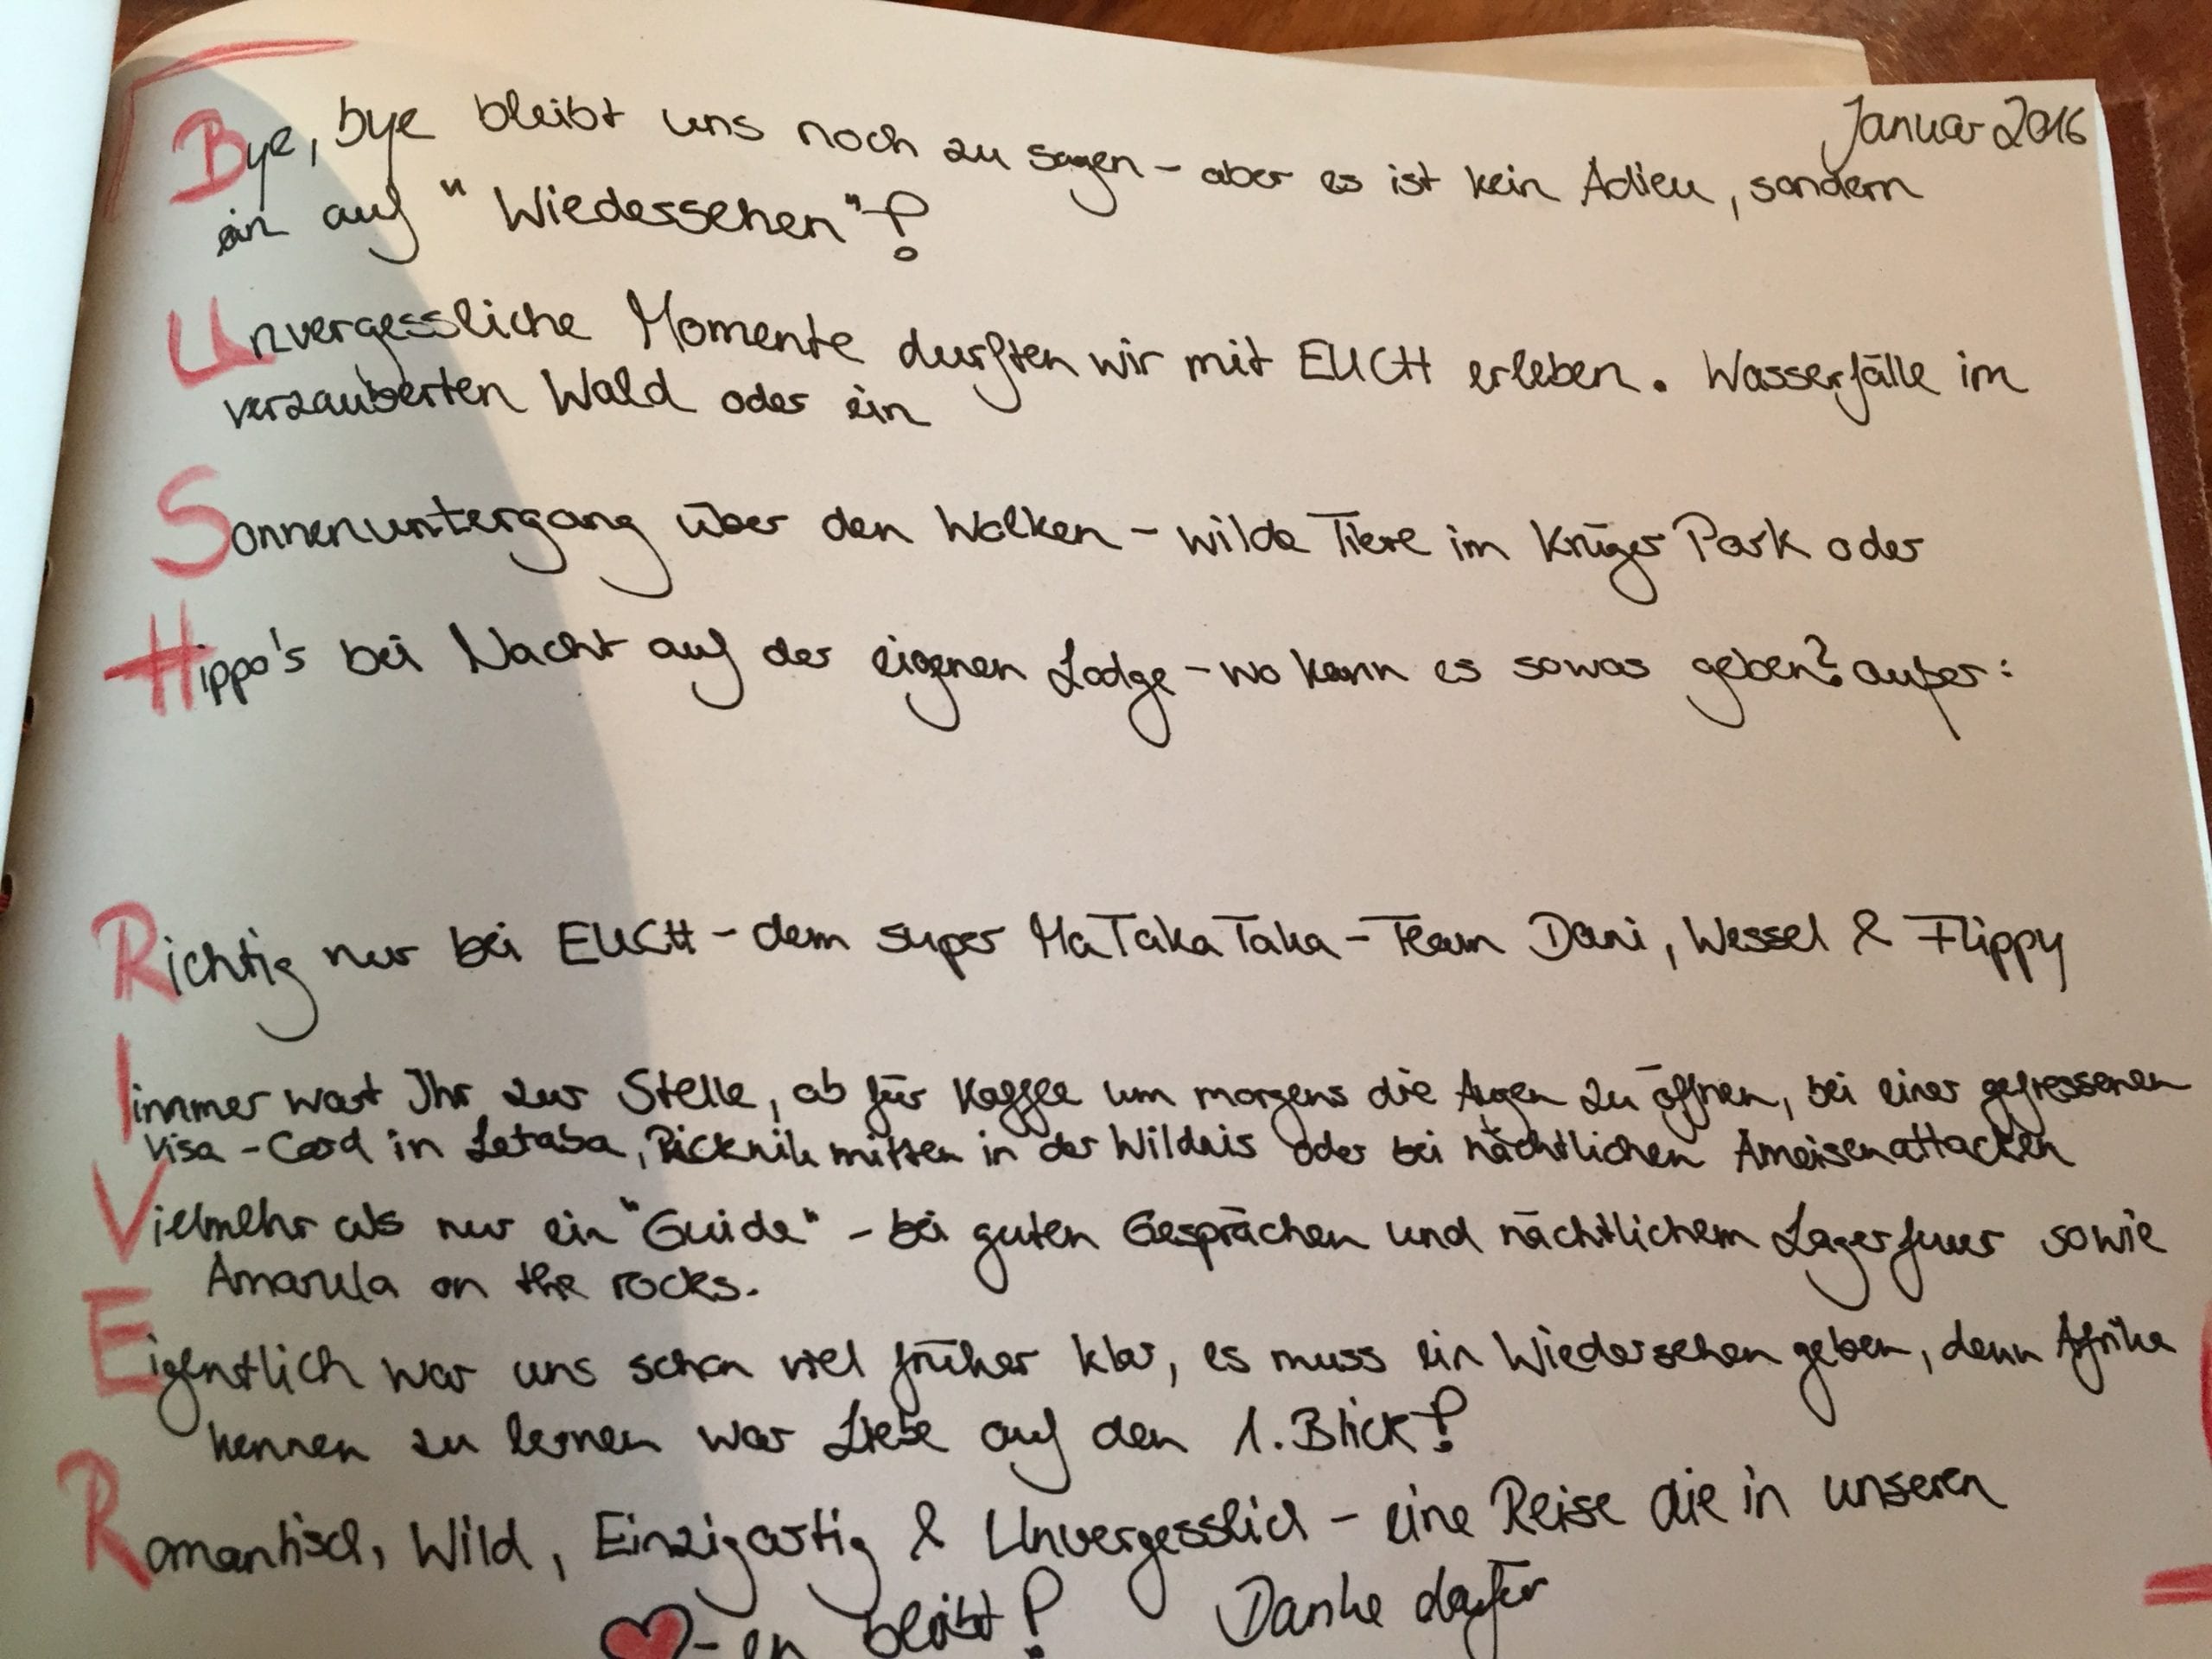 Januar 2016
Bye, bye bleibt uns noch zu sagen - aber es ist kein Adieu, sondern
ein auf "Wiedersehen"!
Unvergessliche Momente durften wir mit EUCH erleben. Wasserfälle im
verzauberten Wald oder ein
Sonnenuntergang über den Wolken - wilde Tiere im Krüger Park oder
Hippo's bei Nacht auf der eigenen Lodge - wo kann es sowas geben? außer:
Richtig nur bei EUCH - dem super MaTakaTaka - Team Dani, Wessel & Flippy
Iimmer wart Ihr zur Stelle, ob für Kaffee um morgens die Augen zu öffnen, bei einer gefressenen
Visa - Card in Letaba, Picknik mitten in der Wildnis oder bei nächtlichen Ameisenattacken
Vielmehr als nur ein "Guide" - bei guten Gesprächen und nächtlichem Lagerfeuer sowie
Amarula on the rocks.
Eigentlich war uns schon viel früher klar, es muss ein Wiedersehen geben, denn Afrika
kennen zu lernen war Liebe auf den 1. Blick!
Romantisch, Wild, Einzigartig & Unvergesslich - eine Reise die in unseren
♥-en bleibt! Danke dafür